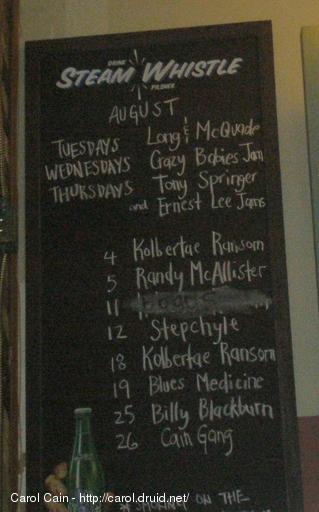 DRINK
STEAM WHISTLE
PILSNER
AUGUST
TUESDAYS Long & McQuade
WEDNESDAYS Crazy Babies Jam
THURSDAYS Tony Springer
and Ernest Lee Jams
4 Kolbertae Ransom
5 Randy McAllister
11
12 Stepchyle
18 Kolbertae Ransom
19 Blues Medicine
25 Billy Blackburn
26 Cain Gang
* SMOKING ON THE
Carol Cain - http://carol.druid.net/